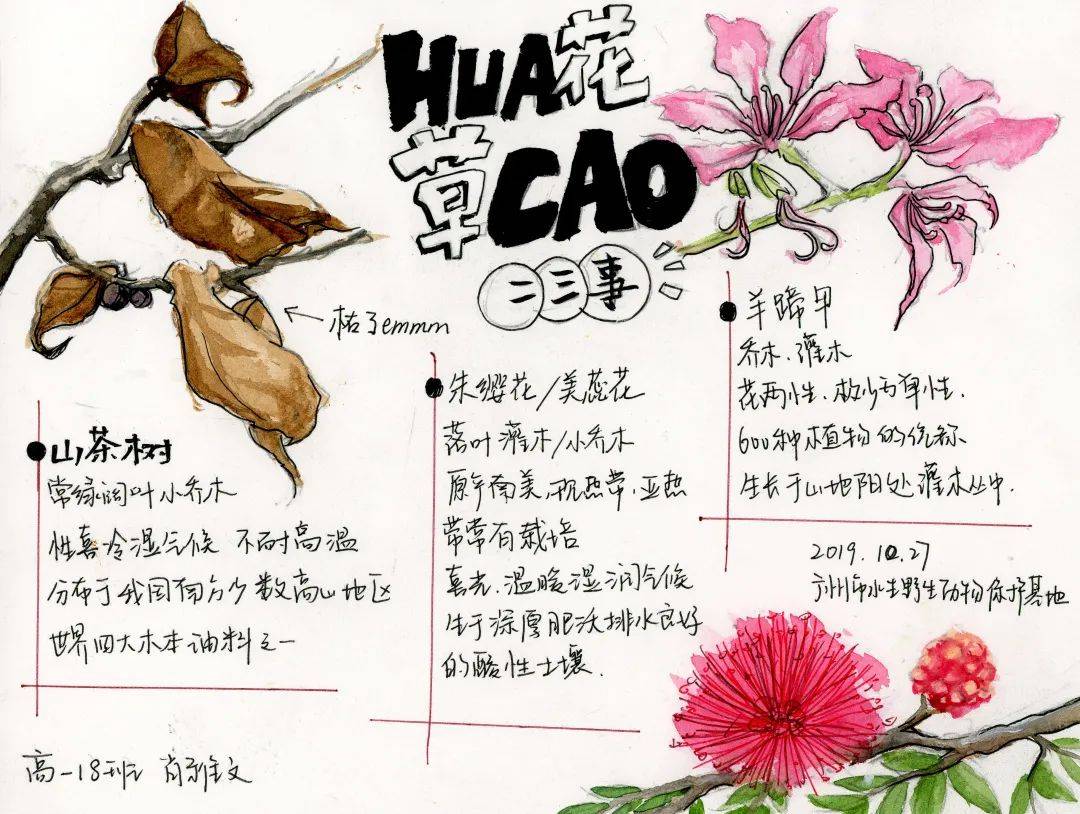 HUA花
草CAO
二三事
枯了emmm
山茶树
常绿阔叶小乔木
性喜冷湿气候 不耐高温
分布于我国南方少数高山地区
世界四大木本油料之一
朱缨花/美蕊花
落叶灌木/小乔木
原产南美,现热带,亚热
带常有栽培
喜光、温暖湿润气候
生于深厚肥沃排水良好
的酸性土壤.
羊蹄甲
乔木、灌木
花两性、极少为单性.
600种植物的统称
生长于山地阳处灌木丛中.
2019.10.27
广州市水生野生动物保护基地
高一18班 肖雅文